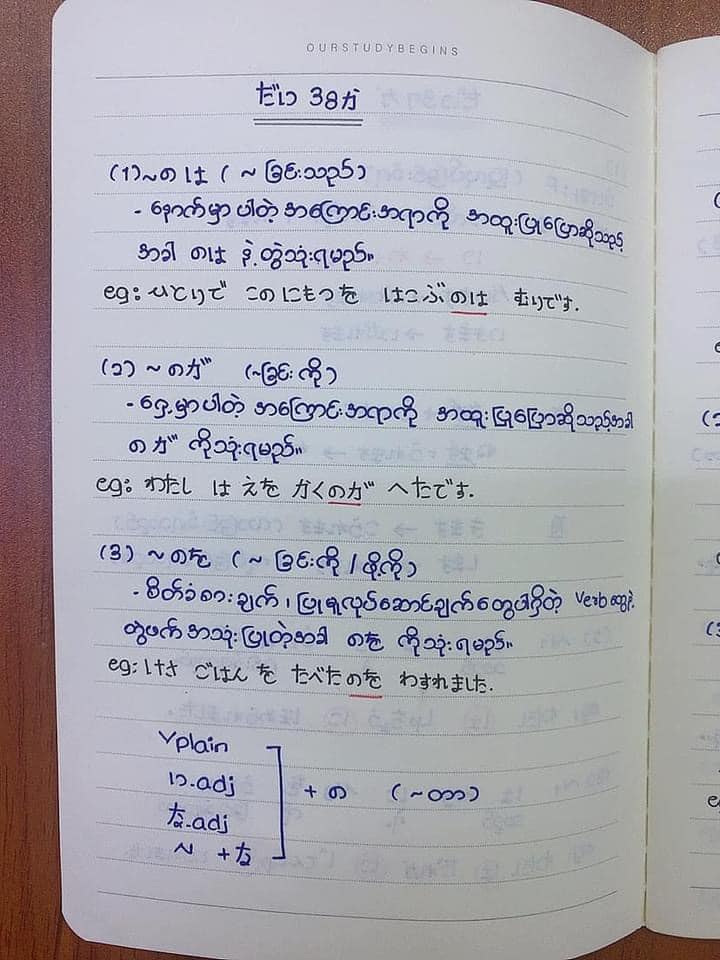 OURSTUDYBEGINS
だい 38か
(1) ~のは ( ~ ခြင်းသည်)
- နောက်မှာပါတဲ့ အကြောင်းအရာကို အထူးပြုပြောဆိုသည့်
အခါ のは နဲ့တွဲသုံးရမည်။
eg: ひとりで このにもつを はこぶのは むりです.
(၁) ~のが (~ခြင်းကို)
- ရှေ့မှာပါတဲ့ အကြောင်းအရာကို အထူးပြုပြောဆိုသည့်အခါ
のが ကိုသုံးရမည်။
eg: わたし は えを かくのが へたです.
(3) ~のを ( ~ ခြင်းကို / ဖို့ကို)
- စိတ်ခံစားချက်၊ ပြုမူလုပ်ဆောင်ချက်တွေပါရှိတဲ့ Verb တွေနဲ့
တွဲဖက်အသုံးပြုတဲ့အခါ のを ကိုသုံးရမည်။
eg: けさ ごはんを たべたのを わすれました.
Vplain
い.adj
な.adj
N +な
+ の ( ~တာ)